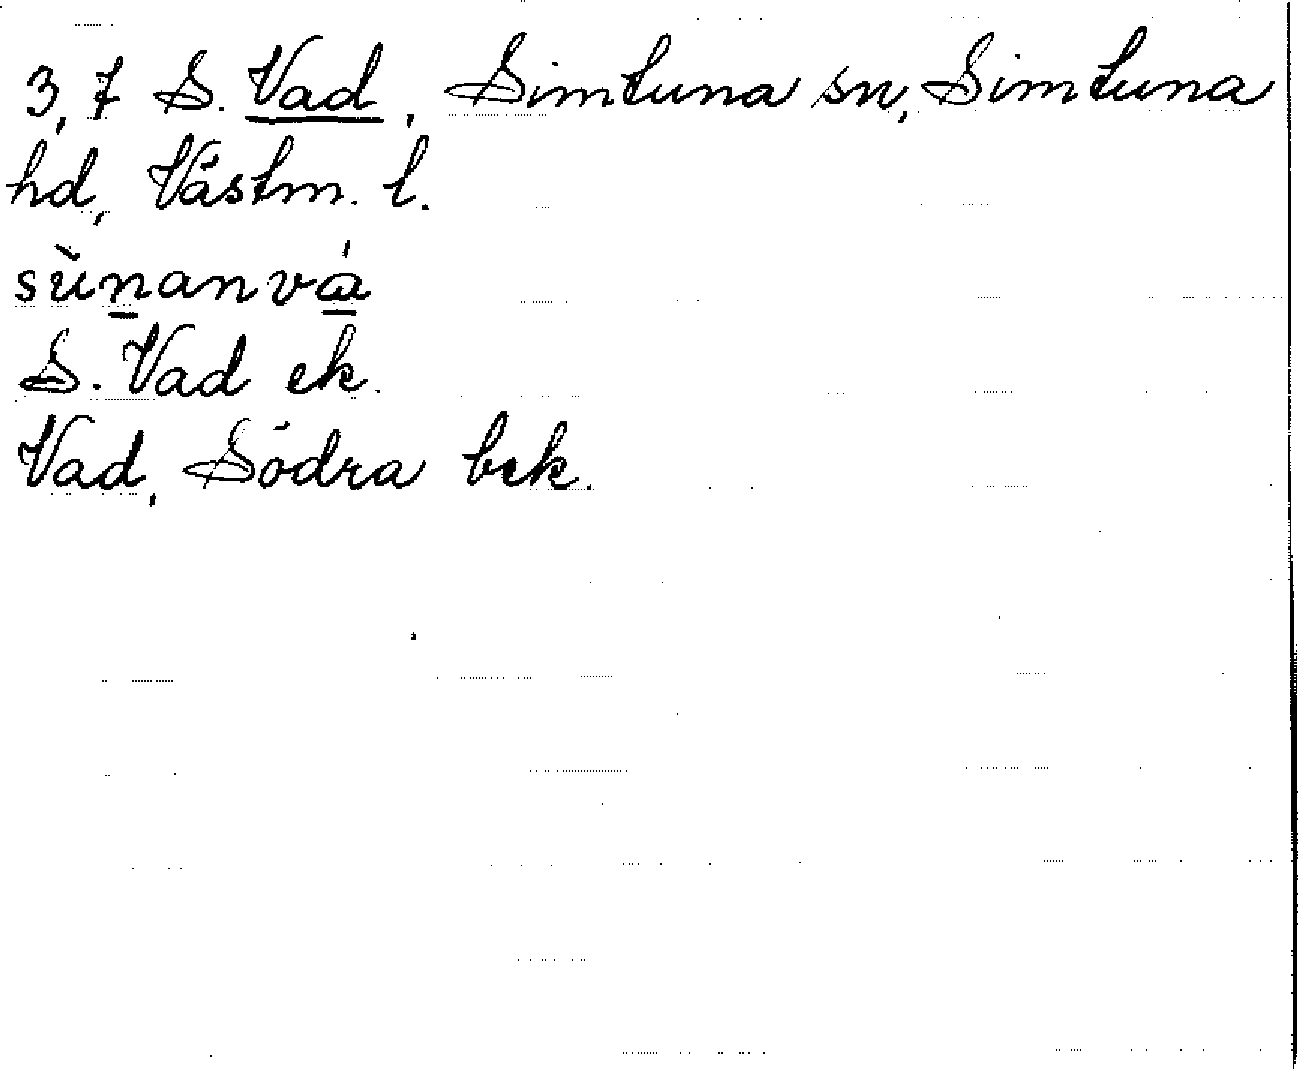 3,7 S. Vad, Simtuna sn, Simtuna
hd, Västm. l.
sùnanvá
S. Vad ek.
Vad, Södra bek.